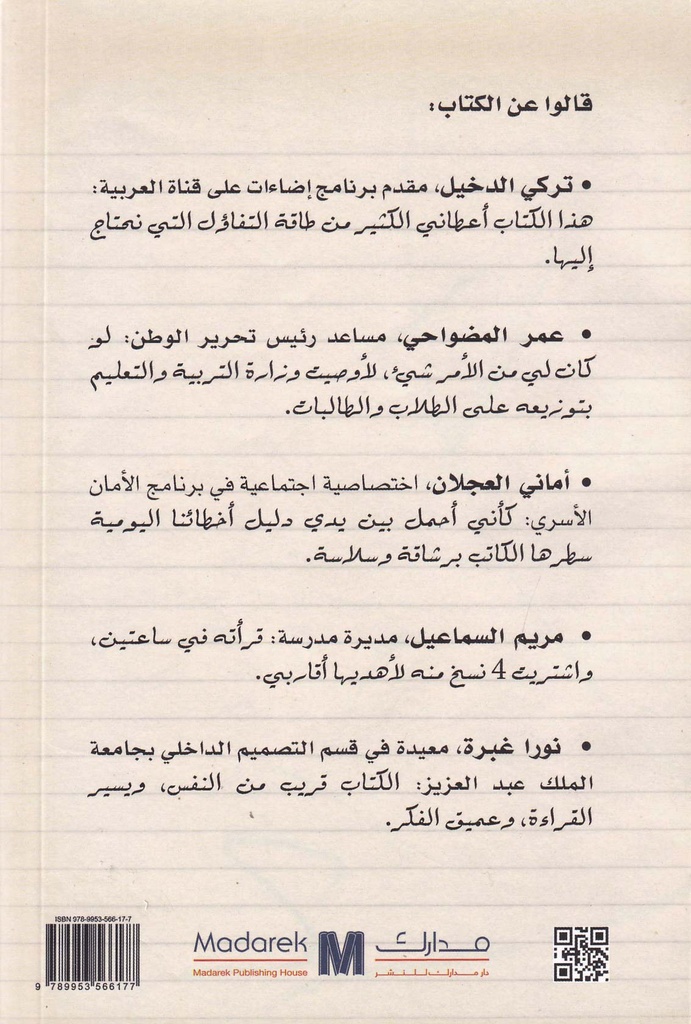 قالوا عن الكتاب:
• تركي الدخيل، مقدم برنامج إضاءات على قناة العربية:
هذا الكتاب أعطاني الكثير من طاقة التفاؤل التي نحتاج
إليها.
• عمر المضواحي، مساعد رئيس تحرير الوطن: لو
كان لي من الأمر شيء، لأوصيت وزارة التربية والتعليم
بتوزيعه على الطلاب والطالبات.
• أماني العجلان، اختصاصية اجتماعية في برنامج الأمان
الأسري: كأني أحمل بين يدي دليل أخطائنا اليومية
سطرها الكاتب برشاقة وسلاسة.
• مريم السماعيل، مديرة مدرسة: قرأته في ساعتين،
واشتريت 4 نسخ منه لأهديها أقاربي.
• نورا غبرة، معيدة في قسم التصميم الداخلي بجامعة
الملك عبد العزيز: الكتاب قريب من النفس، ويسير
القراءة، وعميق الفكر.
ISBN 978-9953-566-17-7
9 789953 566177
Madarek
Madarek Publishing House
مدارك
دار مدارك للنشر